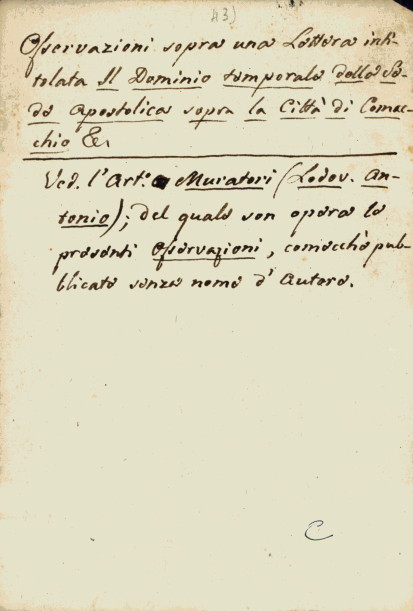 43)
Osservazioni sopra una Lettera inti-
tolata Il Dominio temporale della Se-
de Apostolica sopra la Città di Comac-
chio &c.
Ved. l'Art.º Muratori (Lodov. An-
tonio); del quale son opera le
presenti Osservazioni, comecchè pub-
blicate senza nome d'Autore.
C